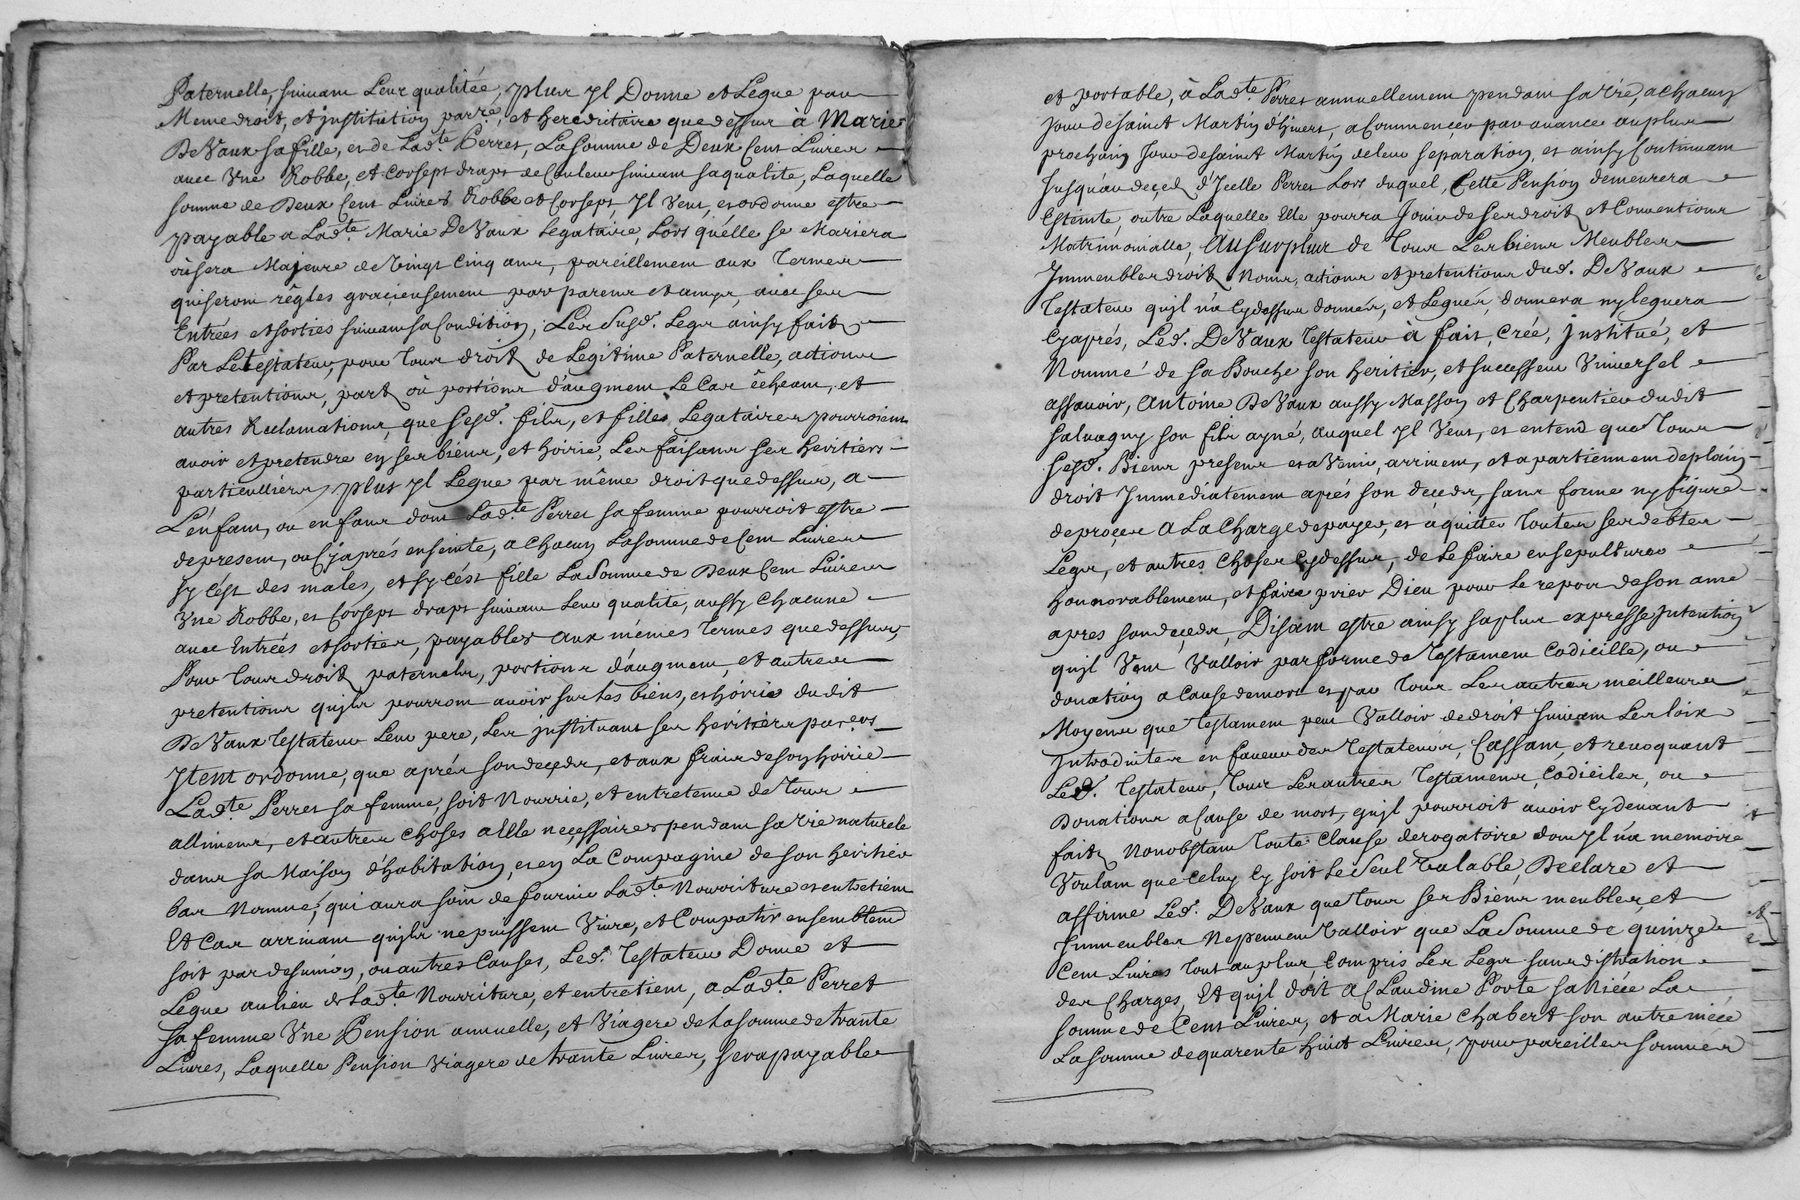 Paternelle, suivant Leur qualitée, plus yl Donne et Legue par
Meme droit, et institution partre, et hereditaire que dessus à Marie
DeVaux sa fille, et de Ladte. Perret, La somme de Deux Cent Livres
avec Vne Robbe, et Corsept draps de Couleur suivant sa qualite, Laquelle
somme de Deux Cent Livres Robbe et Corsept yl Veut, et ordonne estre
payable a Ladte. Marie DeVaux Legataire, Lors qu'élle se Mariera
où sera Majeure de Vingt Cinq ans, pareillement aux Termes
qui seront régles gracieusement par parens et amys, avec ses
Entrées et sorties suivant sa Condition; Les Susd. Legs ainsy faits
Par Le testateur, pour Tous droits de Legitime Paternelle, actions
et pretentions, parts où portions d'augment Le Cas écheant, et
autres Reclamations, que sesd. fils, et filles Legataires pourroient
avoir et pretendre en ses biens, et hoirie, Les faisant ses heritiers
particulliers, plus yl Legue par même droit que dessus, a
L'énfant, ou enfans dont Ladte. Perret sa femme pourroit estre
de present, ou Cy aprés enseinte, a Chacun La somme de Cent Livres
sy c'ést des males, et sy c'ést fille La Somme de Deux Cent Livres
Vne Robbe, et Corsept draps suivant Leur qualite, aussy Chacune
avec Entrées et sorties, payables aux mêmes Termes que dessus,
Pour Tous droits paternels, portions d'augment, et autres
pretentions qu'jls pourront avoir sur Les biens, et hoirie dudit
DeVaux Testateur Leur pere, Les jnstituant ses heritiers
Jtent ordonne, que aprés son decéds, et aux frais de son hoirie
Ladte. Perret sa femme, soit Nourrie, et entretenue de Tous
allimens, et autres choses a Elle neçessaires pendant sa vie naturele
dans sa Maison d'habitation, et en La Compagnie de son heritier
bas Nommé, qui aura soin de fournir Ladte. Nourriture et entretient
Et Cas arrivant qu'jls ne puissent Vivre, et Compatir ensemblement
soit par desunion, ou autres Causes, Led. Testateur Donne et
Legue au lieu de Ladte. Nourriture, et entretient, a Ladte. Perret
sa femme Vne Pension annuelle, et Viagere de La somme de trante
Livres, Laquelle Pension Viagere de trante Livres, sera payable
et portable, à Ladte. Perret annuellement pendant sa Vie, a chacun
jour de saint Martin d'hivert, a Commençer par avance au plus
prochain jour de saint Martin de leur separation, et ainsy Continuant
Jusqu'au decéd d'Jcelle Perret Lors duquel, Cette Pension demeurera
Esteinte, outre Laquelle Elle pourra Jouir de ses droits et Conventions
Matrimonialle, Au surplus de Tous Les biens Meubles
Jmmeubles droits Noms, actions et pretentions dud. DeVaux
Testateur qu'jl n'a Cy dessus donnés, et Legués, donnera ny leguera
Cy aprés, Led. DeVaux Testateur à fait, Créé, Jnstitué, et
Nommé de sa Bouche son heritier, et successeur Vniversel
assavoir, Antoine DeVaux aussy Masson et Charpentier dudit
Salvagny son fils ayné, auquel yl Veut, et entend que Tous
sesd. Biens presens et a Venir, arrivent, et apartiennent de plain
droit Jmmediatement aprés son decéds, sans forme ny figure
de proçes A La Charge de payer, et àquitter Toutes ses debtes
Legs, et autres Choses Cy dessus, de Le faire ensepulturer
honnorablement, et faire prier Dieu pour Le repos de son ame
apres son decéds, Disant estre ainsy sa plus expresse jntention
qu'jl Veut Valloir par forme de Testament Codicille, ou
donation a Cause de mort et par Tous Les autres meilleurs
Moyens que Testament peut Valloir de droit suivant Les Loix
Jntroduites en faveur des Testateurs, Cassant, et revoquant
Led. Testateur, Tous Les autres Testamens, Codiciles, ou
Donations a Cause de mort, qu'jl pourroit avoir Cy devant
faits Nonobstant Toute Clause derogatoire dont yl n'a memoire
Voulant que Celuy Cy soit Le Seul Valable, Declare et
affirme Led. DeVaux que Tous ses Biens meubles, et
Jmmeubles Ne peuvent Valloir que La Somme de quinze
Cent Livres tout au plus, Compris Les Legs sans distration
des Charges, Et qu'jl doit a Claudine Porte sa Niéce La
somme de Cent Livres, et a Marie Chabert son autre niéce
La somme de quarente huit Livres, pour pareilles sommes